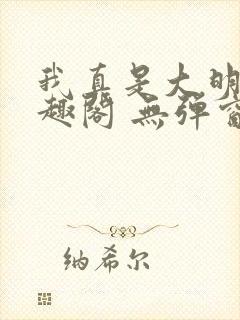 我真是大明
趣阁 無弹窗
纳希尔